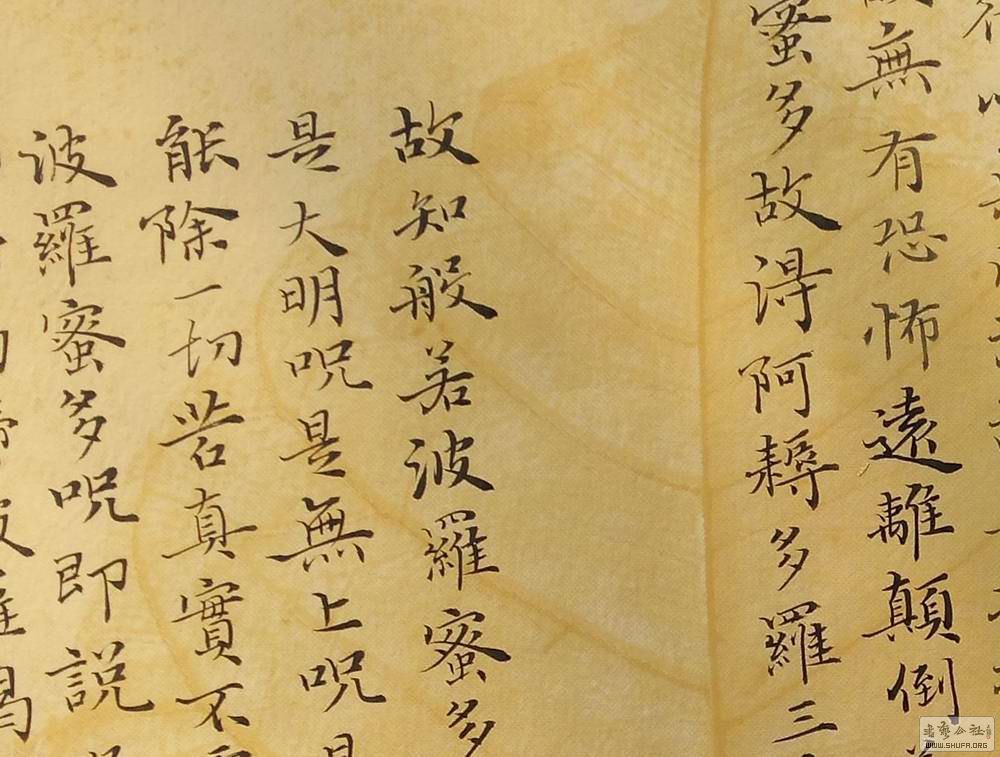 無有恐怖遠離顛倒
蜜多故得阿耨多羅三
故知般若波羅蜜多
是大明呪是無上呪是
能除一切苦真實不
波羅蜜多呪即説
WWW.SHUFA.ORG